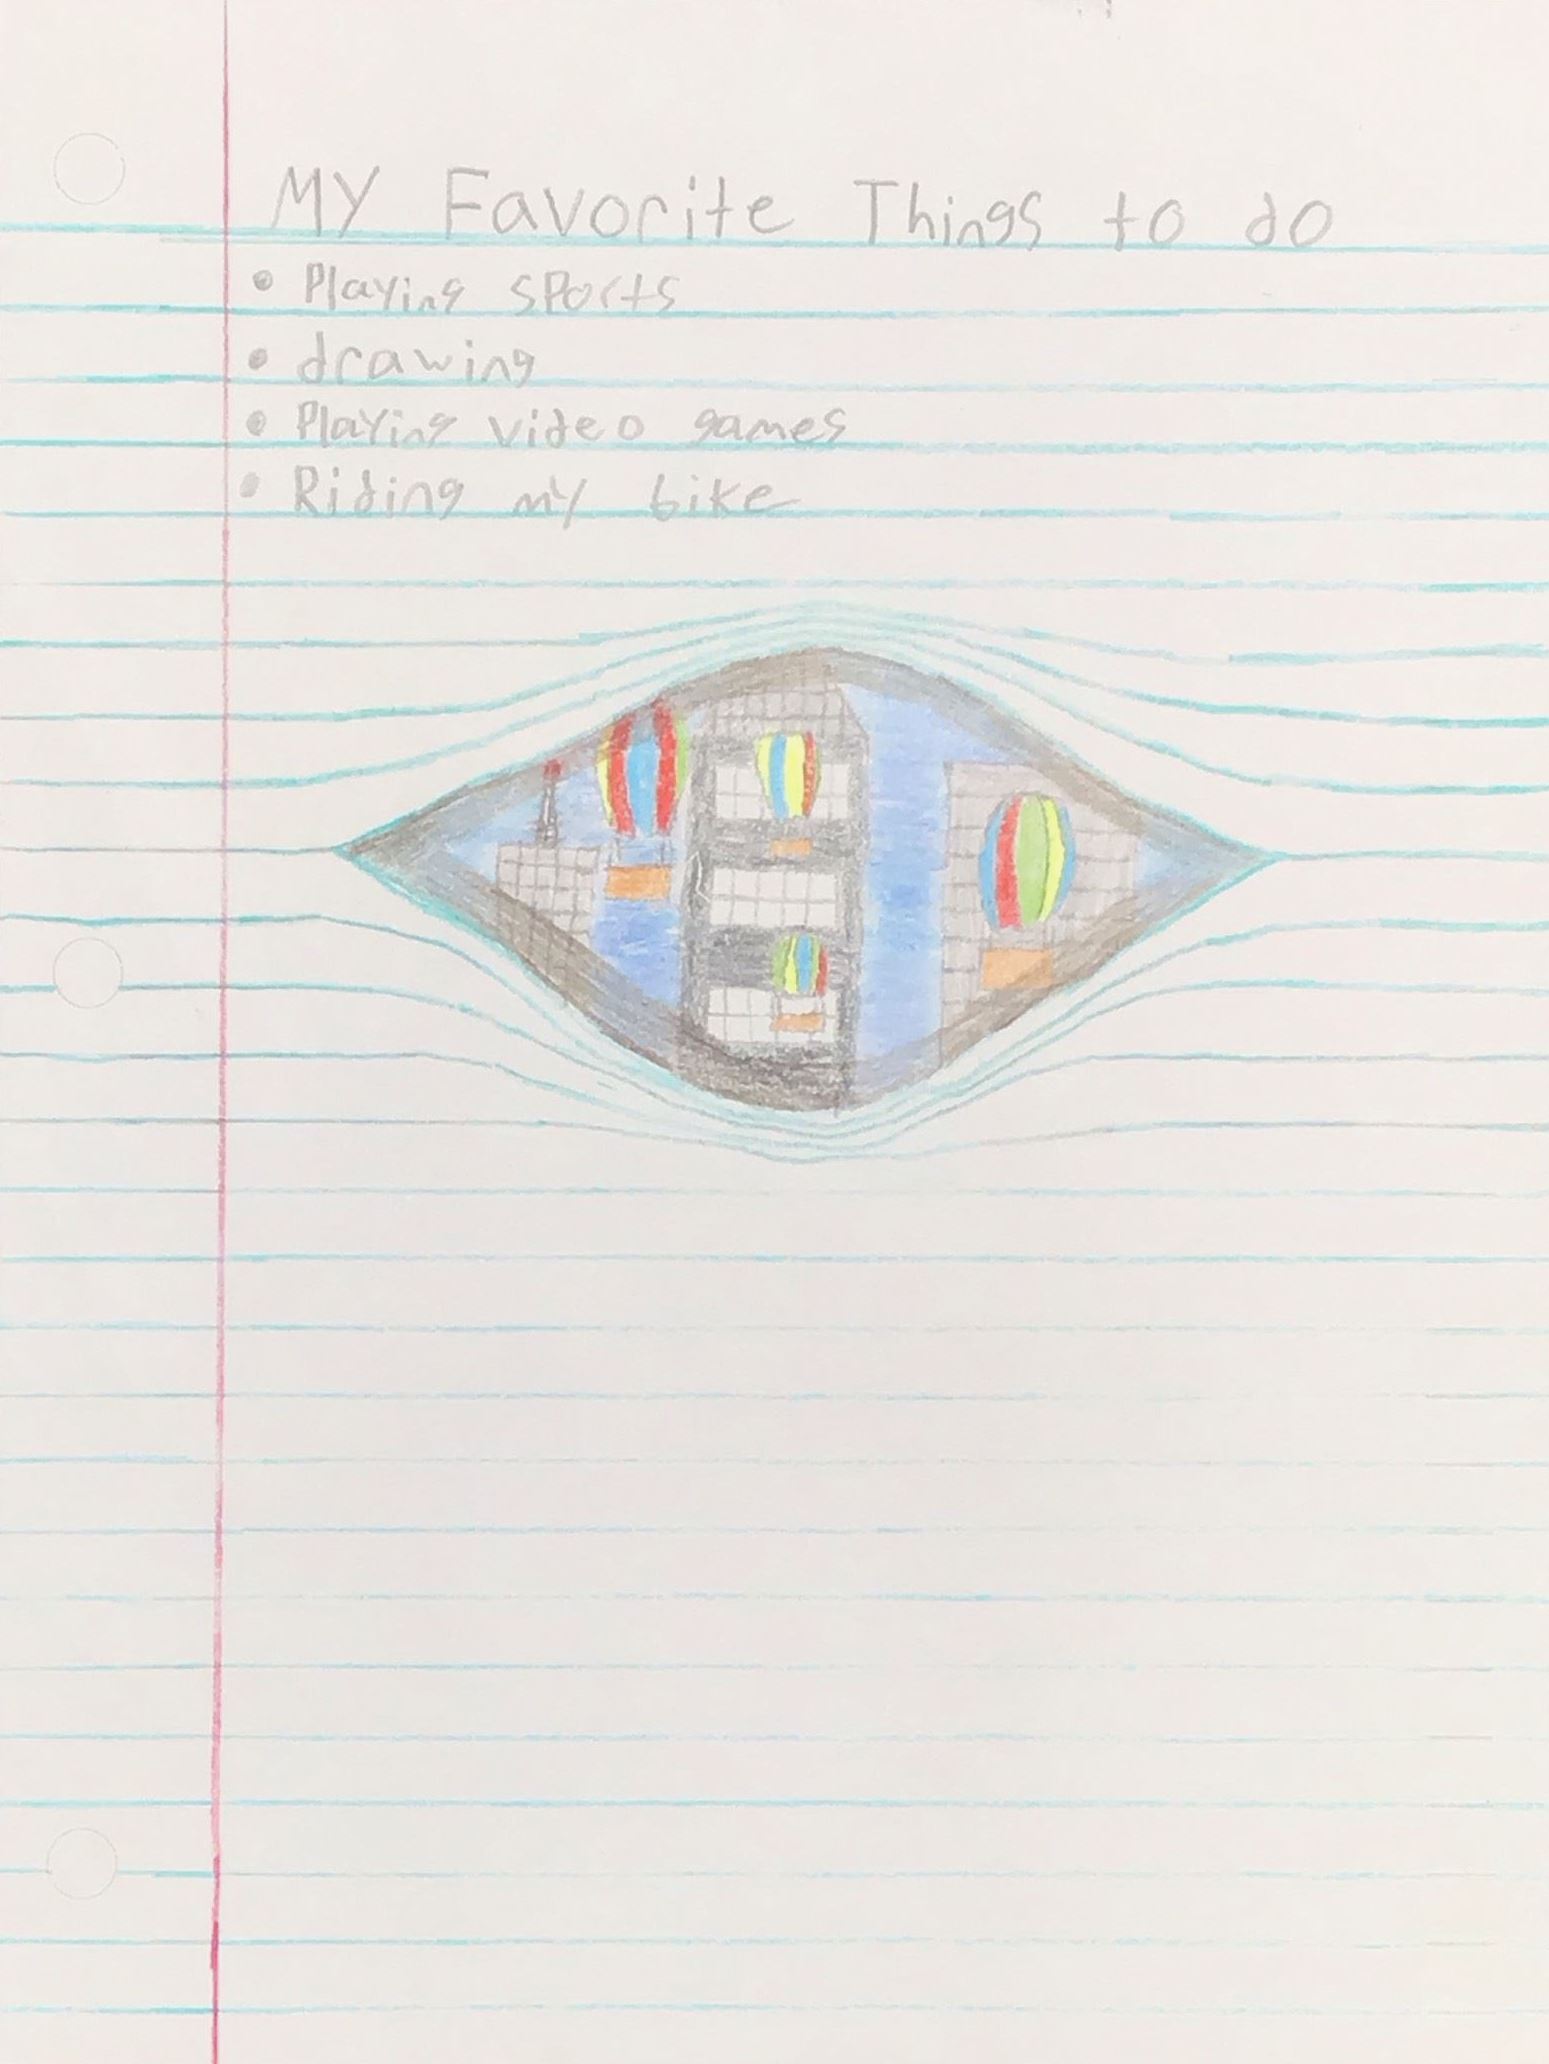 MY Favorite Things to do
• Playing sports
• drawing
• Playing video games
• Riding my bike